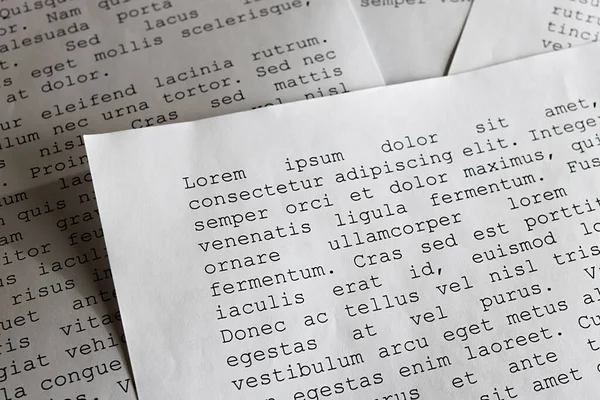 Quisqu
or. Nam porta
alesuada lacus scelerisque,
t. Sed mollis
is eget
at dolor.
ur eleifend lacinia rutrum.
llum nec urna tortor. Sed nec
nisl Cras sed mattis
s. Proin vel nisl
semper ven
rutru
tinci
vel
Lorem ipsum dolor sit amet,
consectetur adipiscing elit. Intege
semper orci et dolor maximus, qui
venenatis ligula fermentum. Fus
ornare ullamcorper lorem
fermentum. Cras sed est porttit
iaculis erat id, euismod lo
Donec ac tellus vel nisl tris
egestas at vel purus. V
vestibulum arcu eget metus al
egestas enim laoreet. Cu
purus et ante t
sit amet
n quis n
am gra
itor feu
us iaculi
risus in
uet ante
ris vitae
giat vehi
la congue
es. V